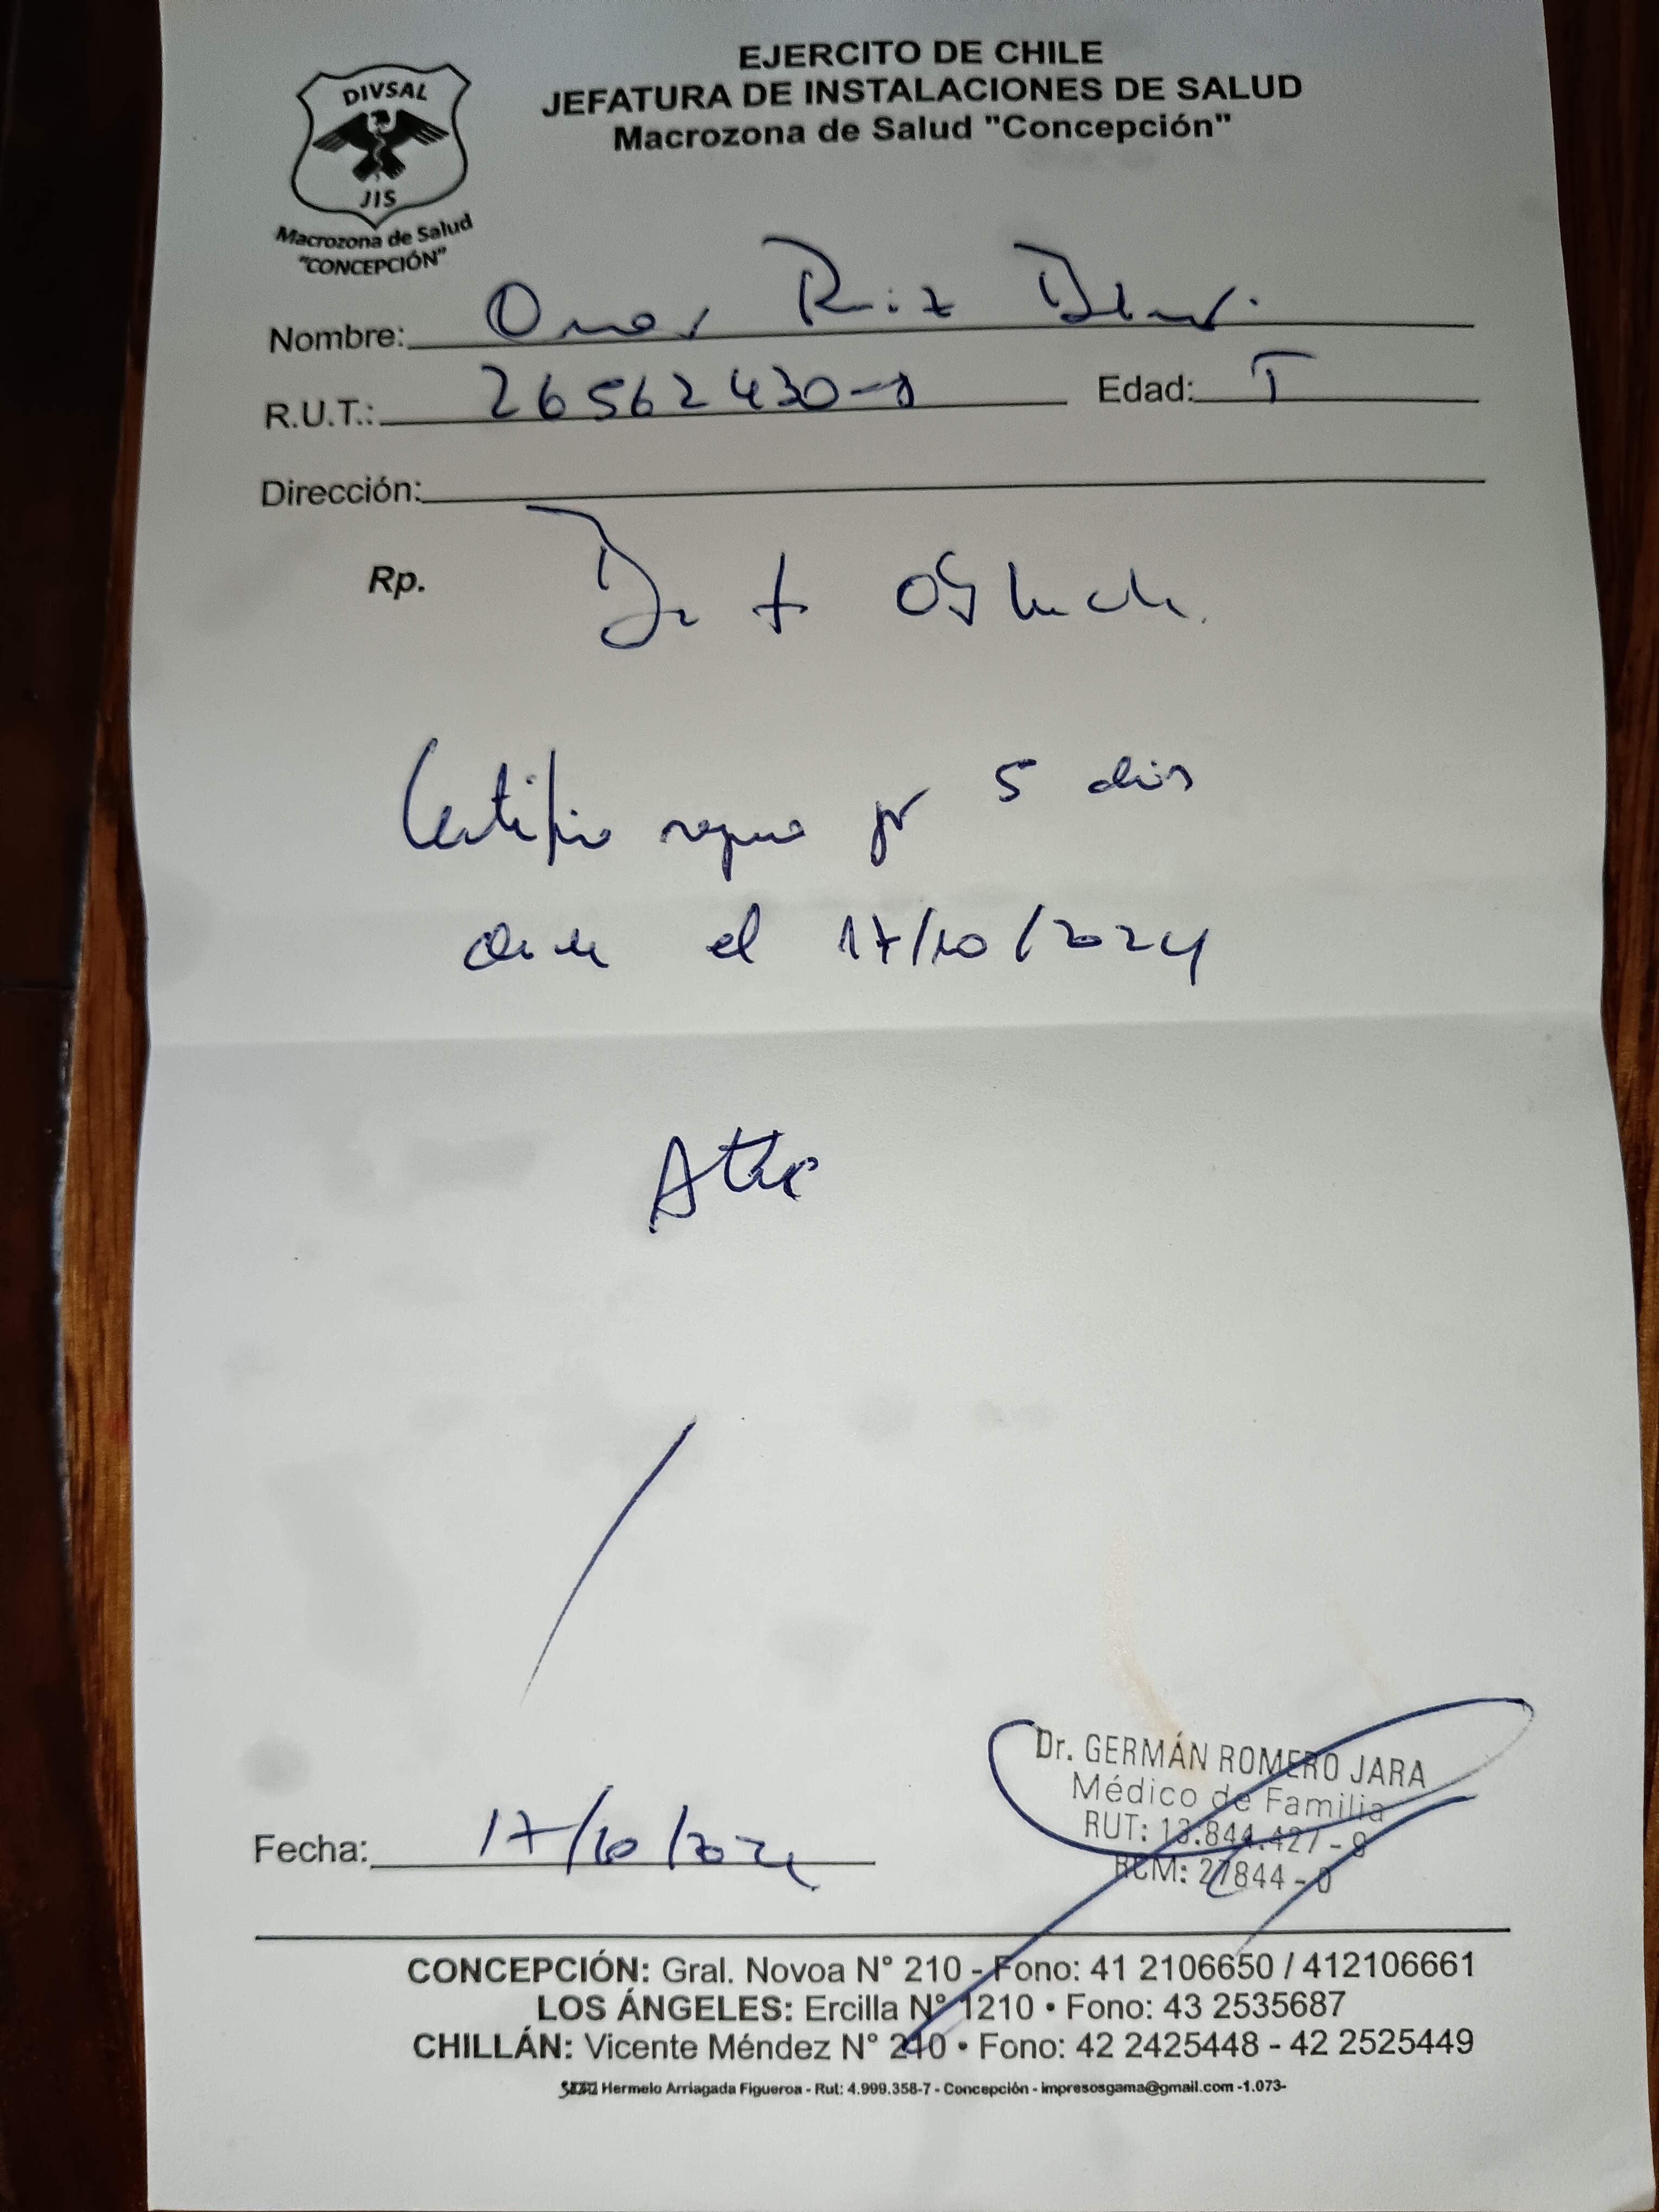 EJERCITO DE CHILE
JEFATURA DE INSTALACIONES DE SALUD
Macrozona de Salud "Concepción"
DIVSAL
JIS
Macrozona de Salud
"CONCEPCIÓN"
Nombre: Omar Ruiz
R.U.T.: 26562430- Edad:
Dirección:
Rp.
Certifico reposo por 5 dias
desde el 17/10/2024
Fecha: 17/10/2024
Dr. GERMÁN ROMERO JARA
Médico de Familia
RUT: 13.844.427 - 9
RCM: 27844 - 0
CONCEPCIÓN: Gral. Novoa N° 210 - Fono: 41 2106650 / 412106661
LOS ÁNGELES: Ercilla N° 1210 • Fono: 43 2535687
CHILLÁN: Vicente Méndez N° 240 • Fono: 42 2425448 - 42 2525449
Hermelo Arriagada Figueroa - Rut: 4.999.358-7 - Concepción - impresosgama@gmail.com -1.073-